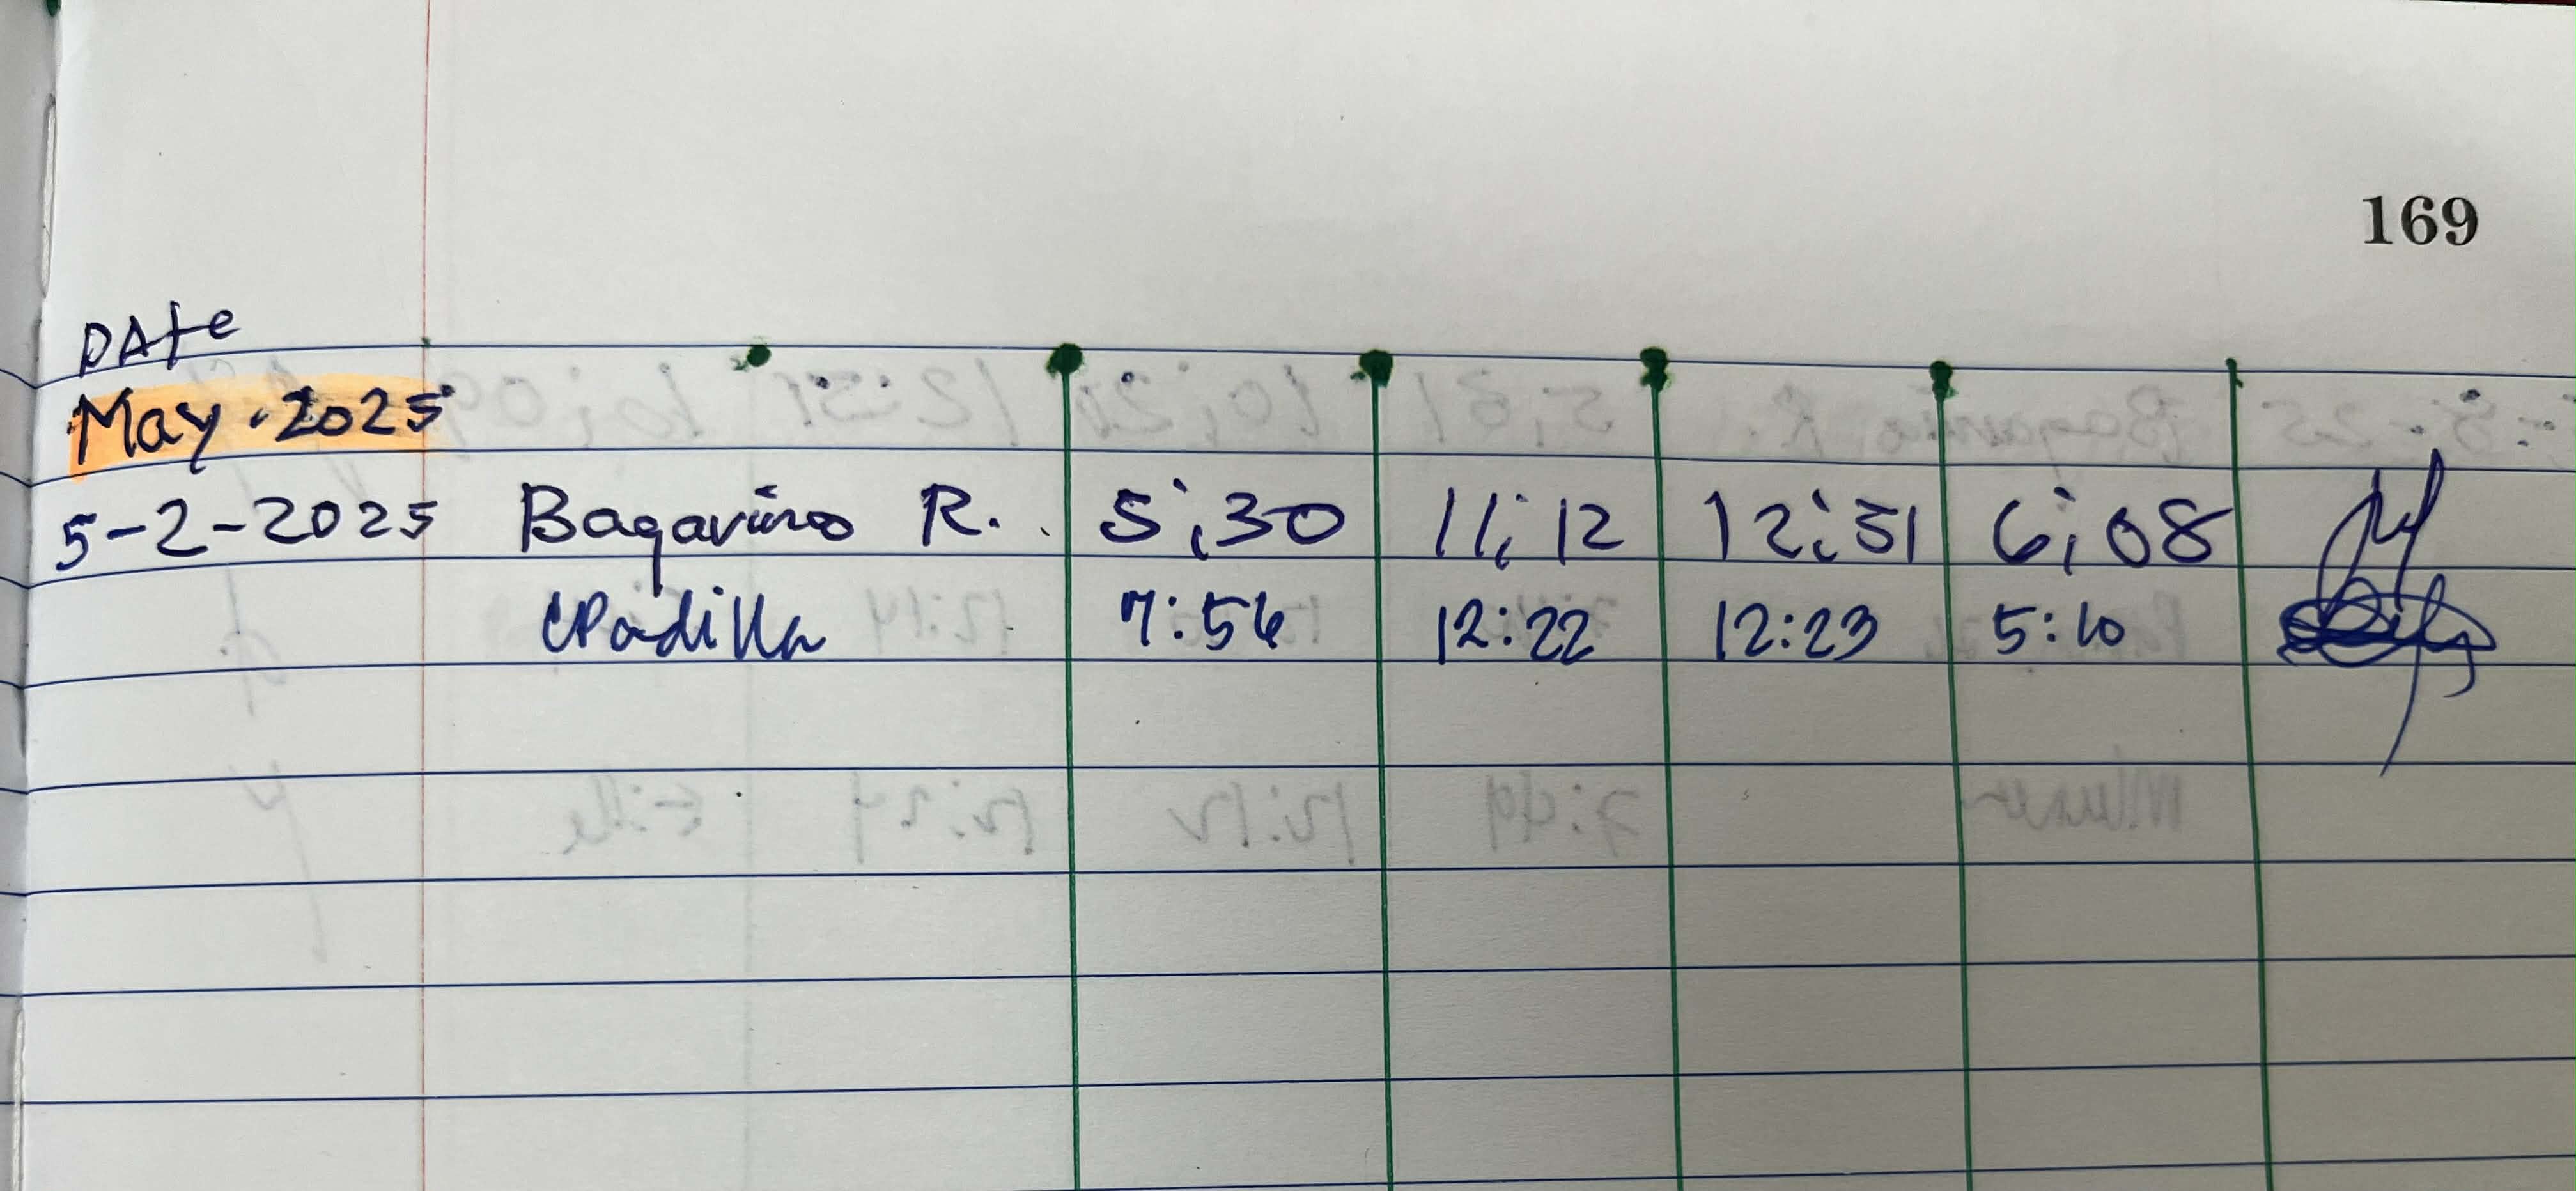 169
DAte
May.2025
5-2-2025 Bagaviño R. 5:30 11:12 12:51 6:08
CPadilla 7:56 12:22 12:23 5:10